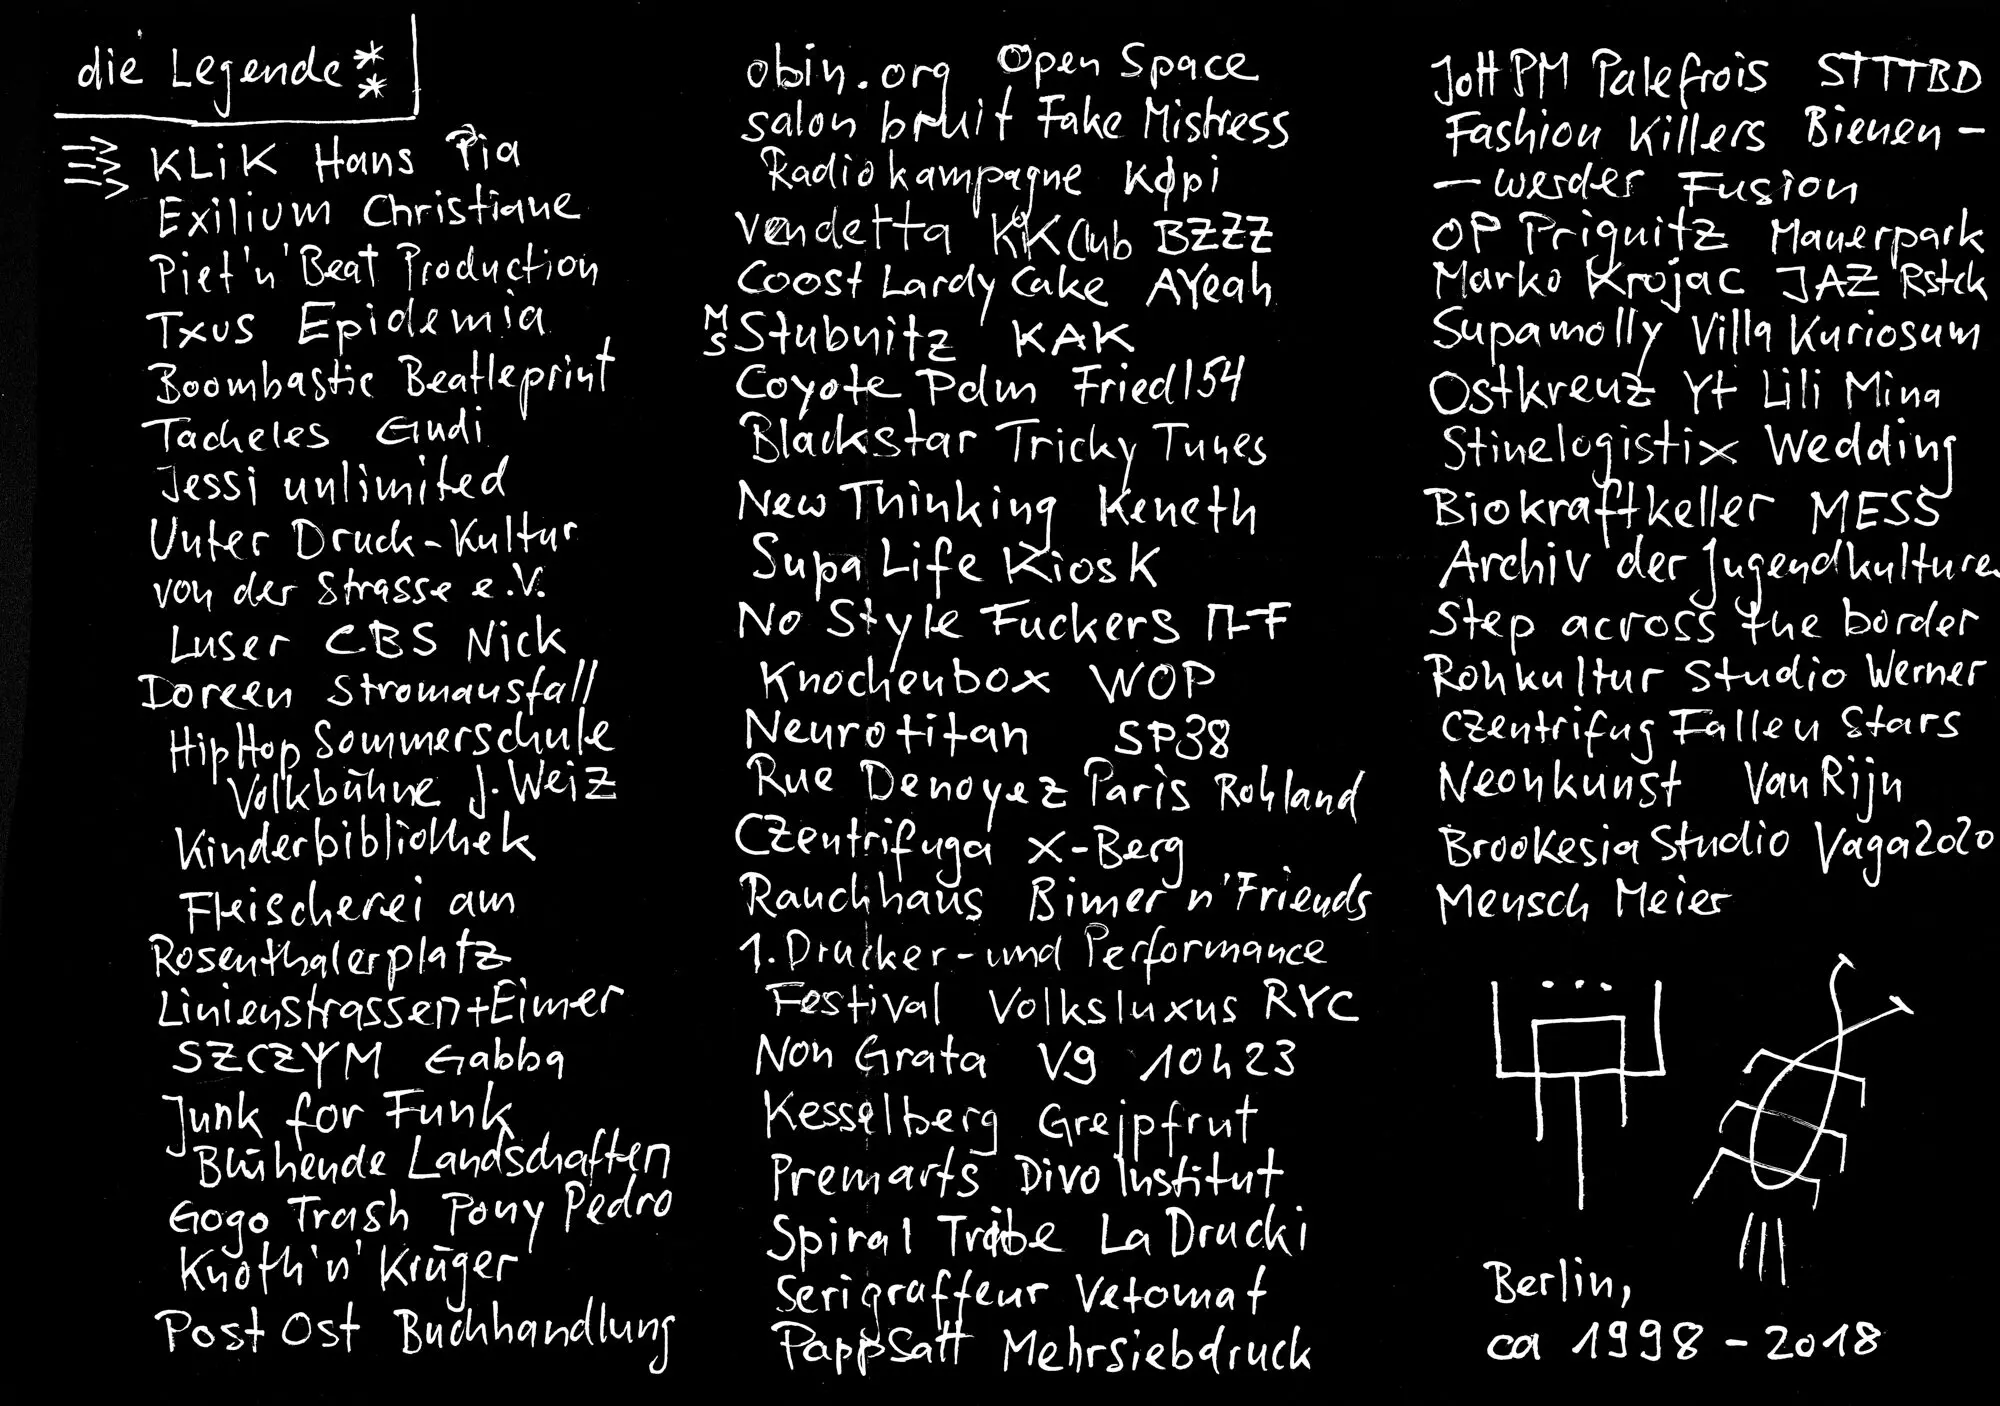 die Legende **
KLiK Hans Pia
Exilium Christiane
Piet'n'Beat Production
Txus Epidemia
Boombastic Beatleprint
Tacheles Gudi
Jessi unlimited
Unter Druck-Kultur
von der Strasse e.V.
Luser CBS Nick
Doreen Stromausfall
HipHop Sommerschule
Volkbühne J. Weiz
Kinderbibliothek
Fleischerei am
Rosenthalerplatz
Linienstrassen+Eimer
SZCZYM Gabba
Junk for Funk
Blühende Landschaften
Gogo Trash Pony Pedro
Knoth'n'Krüger
Post Ost Buchhandlung
obin.org Open Space
salon bruit Fake Mistress
Radiokampagne Køpi
vendetta KKClub BZZZ
Coost Lardy Cake AYeah
MS Stubnitz KAK
Coyote Pdm Fried154
Blackstar Tricky Tunes
New Thinking Keneth
Supa Life Kiosk
No Style Fuckers
Knochenbox WOP
Neurotitan SP38
Rue Denoyez Paris Rohland
CZentrifuga X-Berg
Rauchhaus Bimer n'Friends
1. Drucker- und Performance
Festival Volksluxus RYC
Non Grata V9 10h23
Kesselberg Grejpfrut
Premarts Divo Institut
Spiral Tribe La Drucki
Serigraffeur Vetomat
PappSatt Mehrsiebdruck
JoHPM Palefrois STTTBD
Fashion Killers Bienen-
-werder Fusion
OP Prignitz Mauerpark
Marko Krojac JAZ Rstck
Supamolly Villa Kuriosum
Ostkreuz Yt Lili Mina
Stinelogistix Wedding
Biokraftkeller MESS
Archiv der Jugendkulturen
Step across the border
Rohkultur Studio Werner
CZentrifug Fallen Stars
Neonkunst VanRijn
Brookesia Studio Vaga2020
Mensch Meier
Berlin,
ca 1998-2018